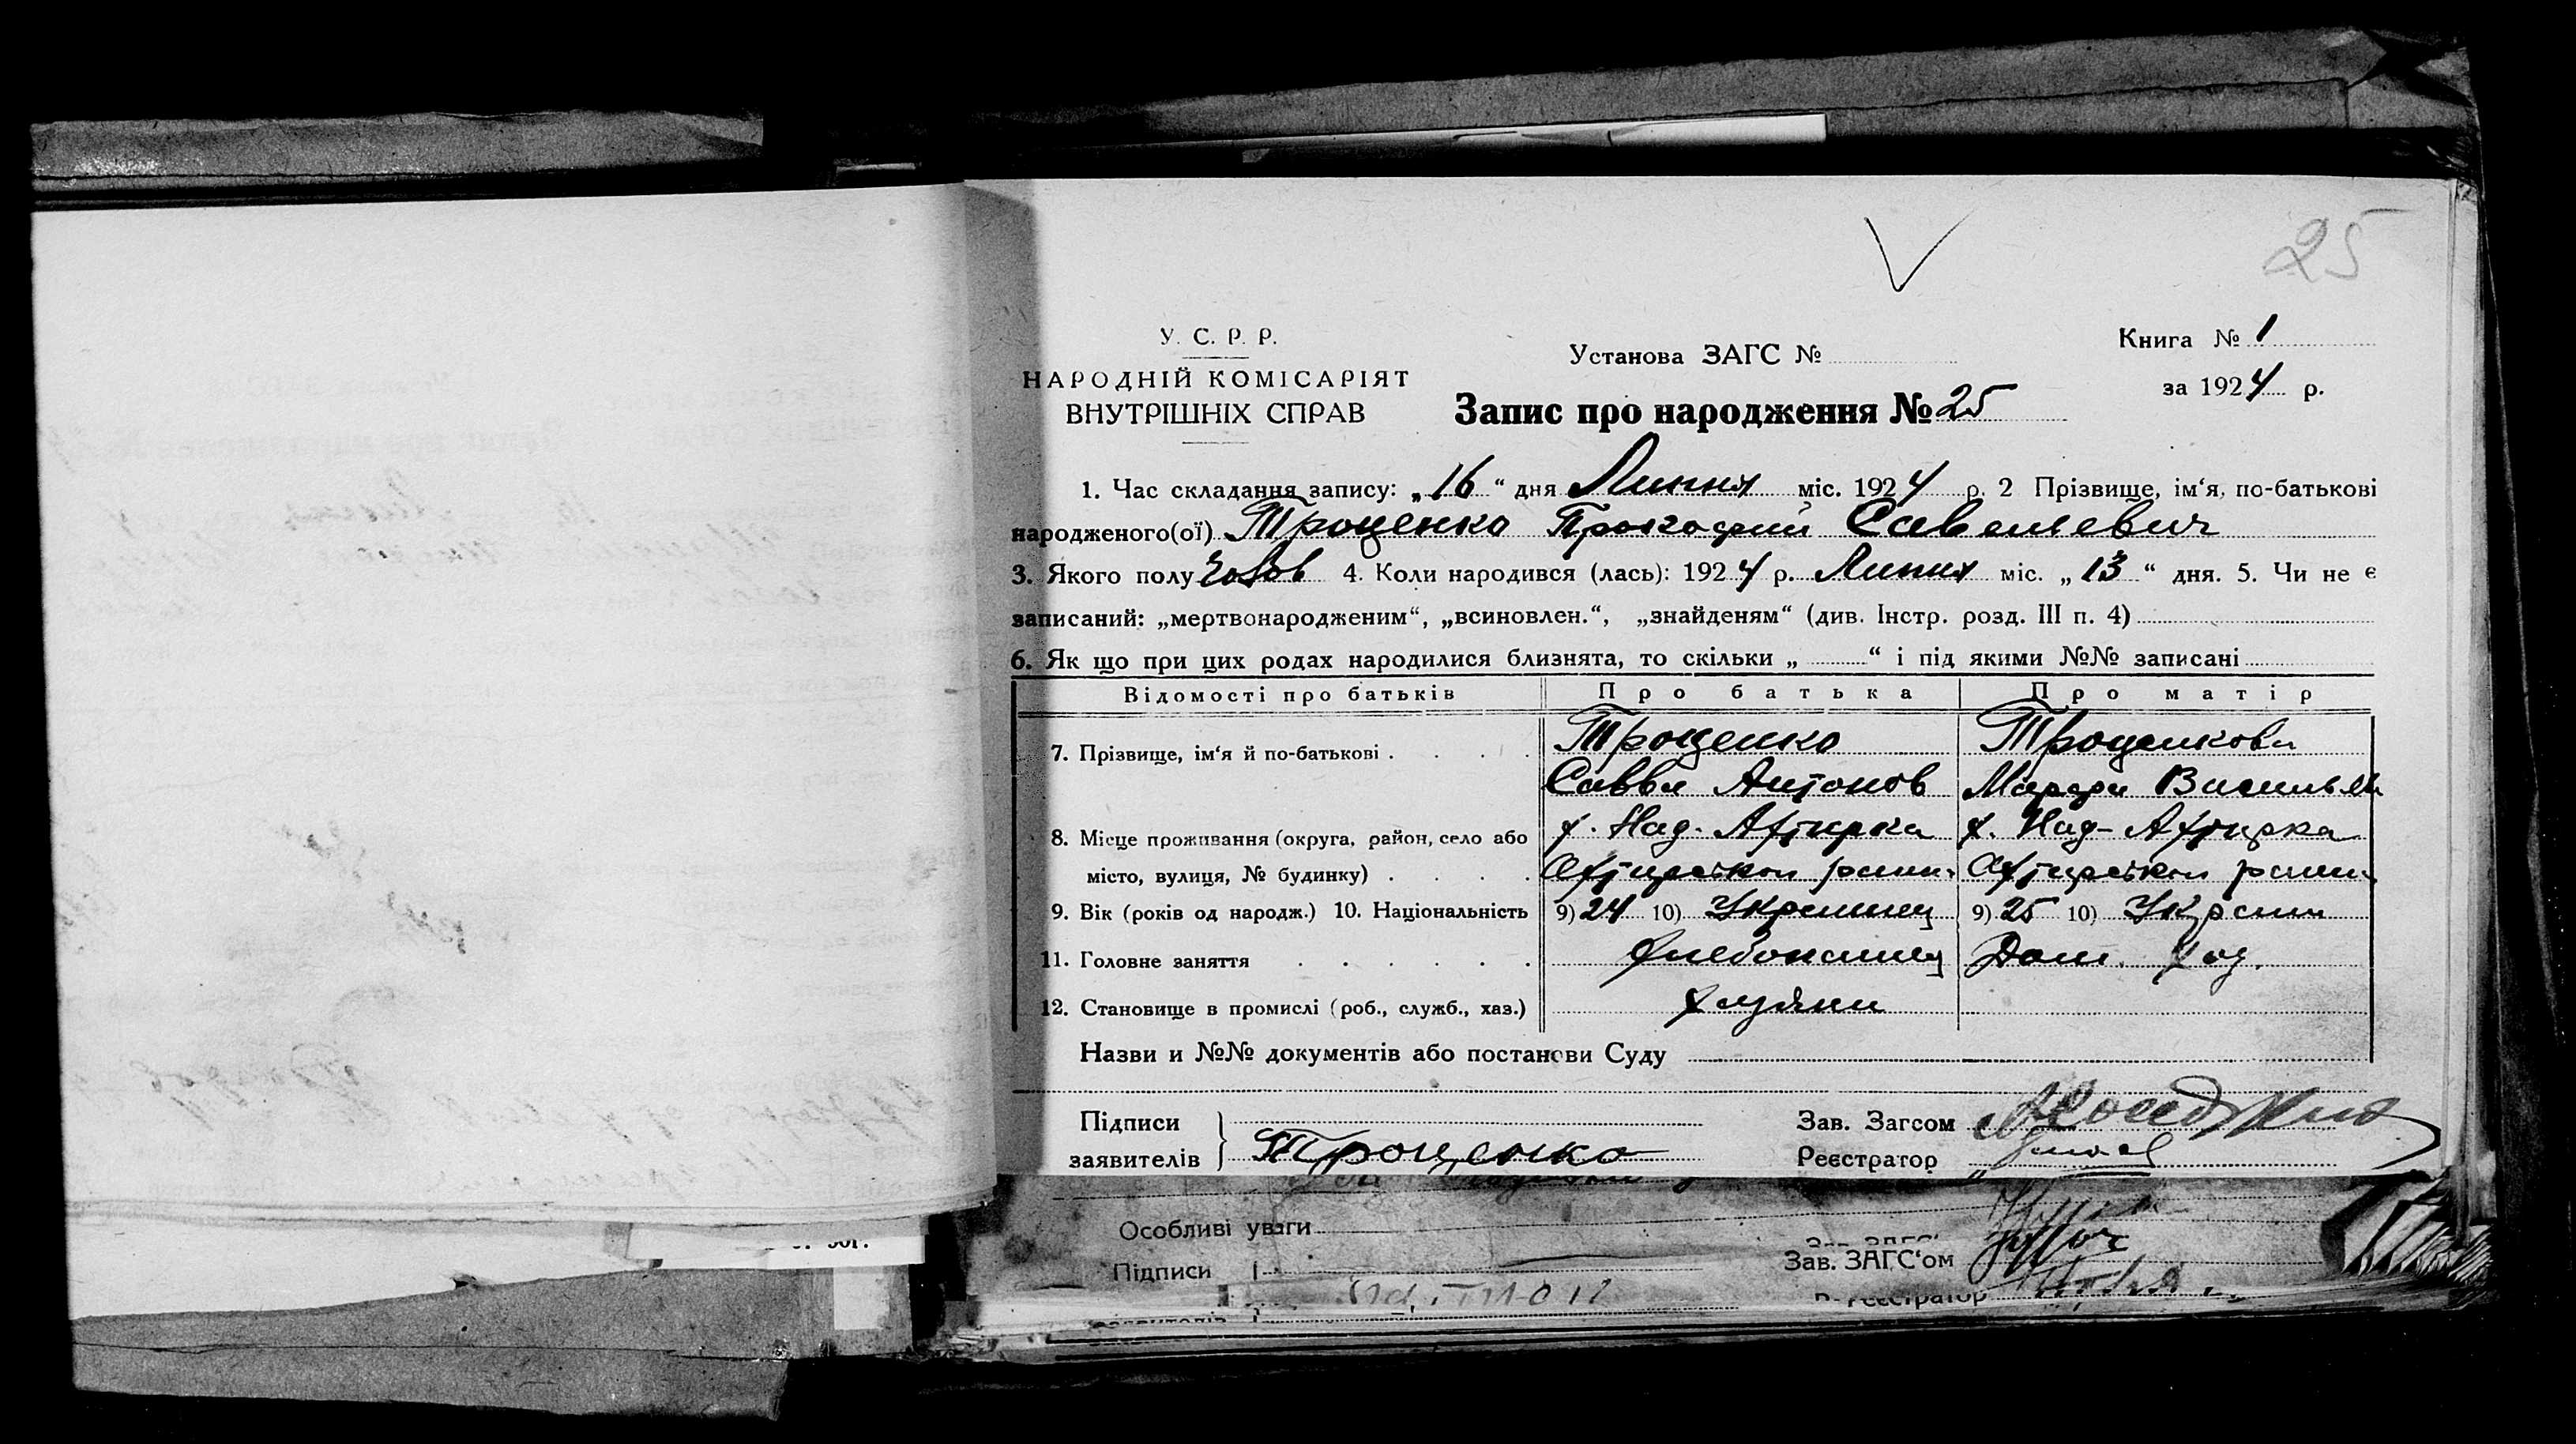 25
У. С. Р. Р.
НАРОДНІЙ КОМІСАРІЯТ
ВНУТРІШНІХ СПРАВ
Установа ЗАГС №
Запис про народження № 25
Книга № 1
за 1924 р.
1. Час складання запису: „16“ дня Липня міс. 1924 р. 2 Прізвище, ім‘я, по-батькові
народженого(ої) Троценко Прокофий Савельевич
3. Якого полу Чолов 4. Коли народився (лась): 1924 р. Липня міс. „13“ дня. 5. Чи не є
записаний: „мертвонародженим“, „всиновлен.“, „знайденям“ (див. Інстр. розд. III п. 4)
6. Як що при цих родах народилися близнята, то скільки „ “ і під якими №№ записані
Відомості про батьків Про батька Про матір
7. Прізвище, ім‘я й по-батькові Троценко Троценкова
Савва Антонов Марфа Василь
8. Місце проживання (округа, район, село або х. Над-Ахтирка х. Над-Ахтирка
місто, вулиця, № будинку)
9. Вік (років од народж.) 10. Національність 9) 24 10) Украинец 9) 25 10) Украин
11. Головне заняття Хлебопашец Дом. Хоз.
12. Становище в промислі (роб., служб., хаз.) Хазяин
Назви и №№ документів або постанови Суду
Підписи
заявителів Троценко
Зав. Загсом
Реєстратор
Особливі уваги
Зав. ЗАГС‘ом
Підписи
Реєстратор